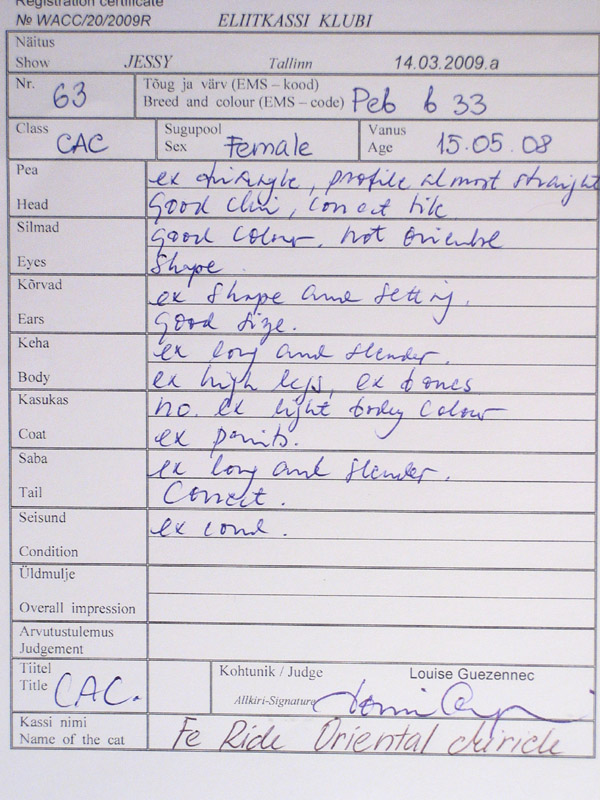 Registration certificate
№ WACC/20/2009R ELIITKASSI KLUBI
Näitus
Show JESSY Tallinn 14.03.2009.a
Nr. 63
Tõug ja värv (EMS – kood)
Breed and colour (EMS – code) Peb b 33
Class CAC
Sugupool
Sex Female
Vanus
Age 15.05.08
Pea
ex triangle, profile almost straight
Head
Good chin, correct
Silmad
good colour, not oriental
Eyes
shape
Kõrvad
ex shape and setting.
Ears
Good size.
Keha
ex long and slender.
Body
ex high legs, ex bones
Kasukas
no. ex light body colour
Coat
ex points.
Saba
ex long and slender.
Tail
Correct.
Seisund
ex cond.
Condition
Üldmulje
Overall impression
Arvutustulemus
Judgement
Tiitel
Title CAC.
Kohtunik / Judge Louise Guezennec
Allkiri-Signature
Kassi nimi
Name of the cat Fe Ride Oriental